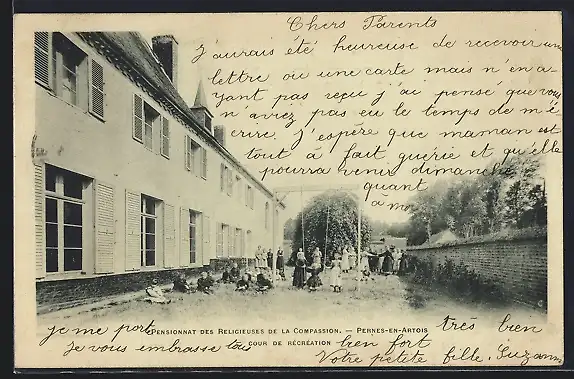 Chers Parents
J'aurais été heureuse de recevoir une
lettre ou une carte mais n'en a-
yant pas reçu j'ai pensé que vous
n'aviez pas eu le temps de m'é
crire. J'espère que maman est
tout à fait guérie et qu'elle
pourra venir dimanche
quant
à moi
PENSIONNAT DES RELIGIEUSES DE LA COMPASSION. — PERNES-EN-ARTOIS
COUR DE RÉCRÉATION
je me porte très bien
Je vous embrasse tous bien fort
Votre petite fille, Suzanne